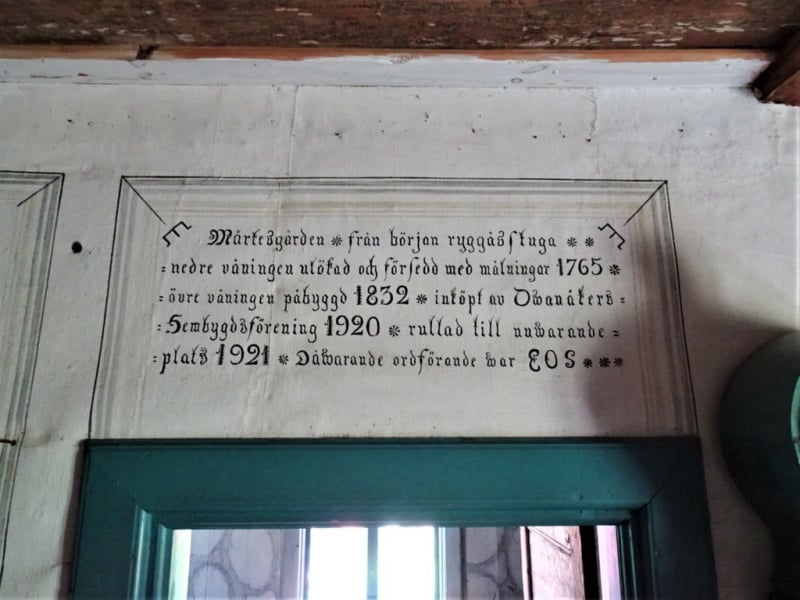 Mårtesgården * från början ryggåsstuga * *
-nedre våningen utökad och försedd med målningar 1765 *
-övre våningen påbyggd 1832 * inköpt av Ovanåkers-
-Hembygdsförening 1920 * rullad till nuvarande-
-plats 1921 * Dåvarande ordförande var EOS * * *